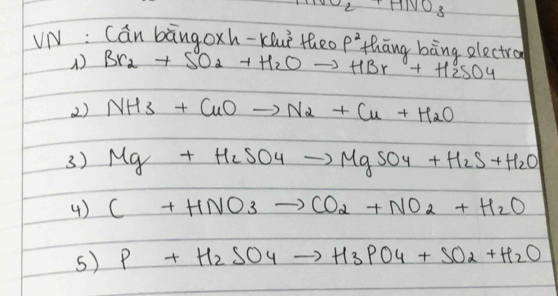 + HNO3
VN : Cân bằng oxh - khử theo p² thăng bằng electron
1) Br2 + SO2 + H2O → HBr + H2SO4
2) NH3 + CuO → N2 + Cu + H2O
3) Mg + H2SO4 → MgSO4 + H2S + H2O
4) C + HNO3 → CO2 + NO2 + H2O
5) P + H2SO4 → H3PO4 + SO2 + H2O